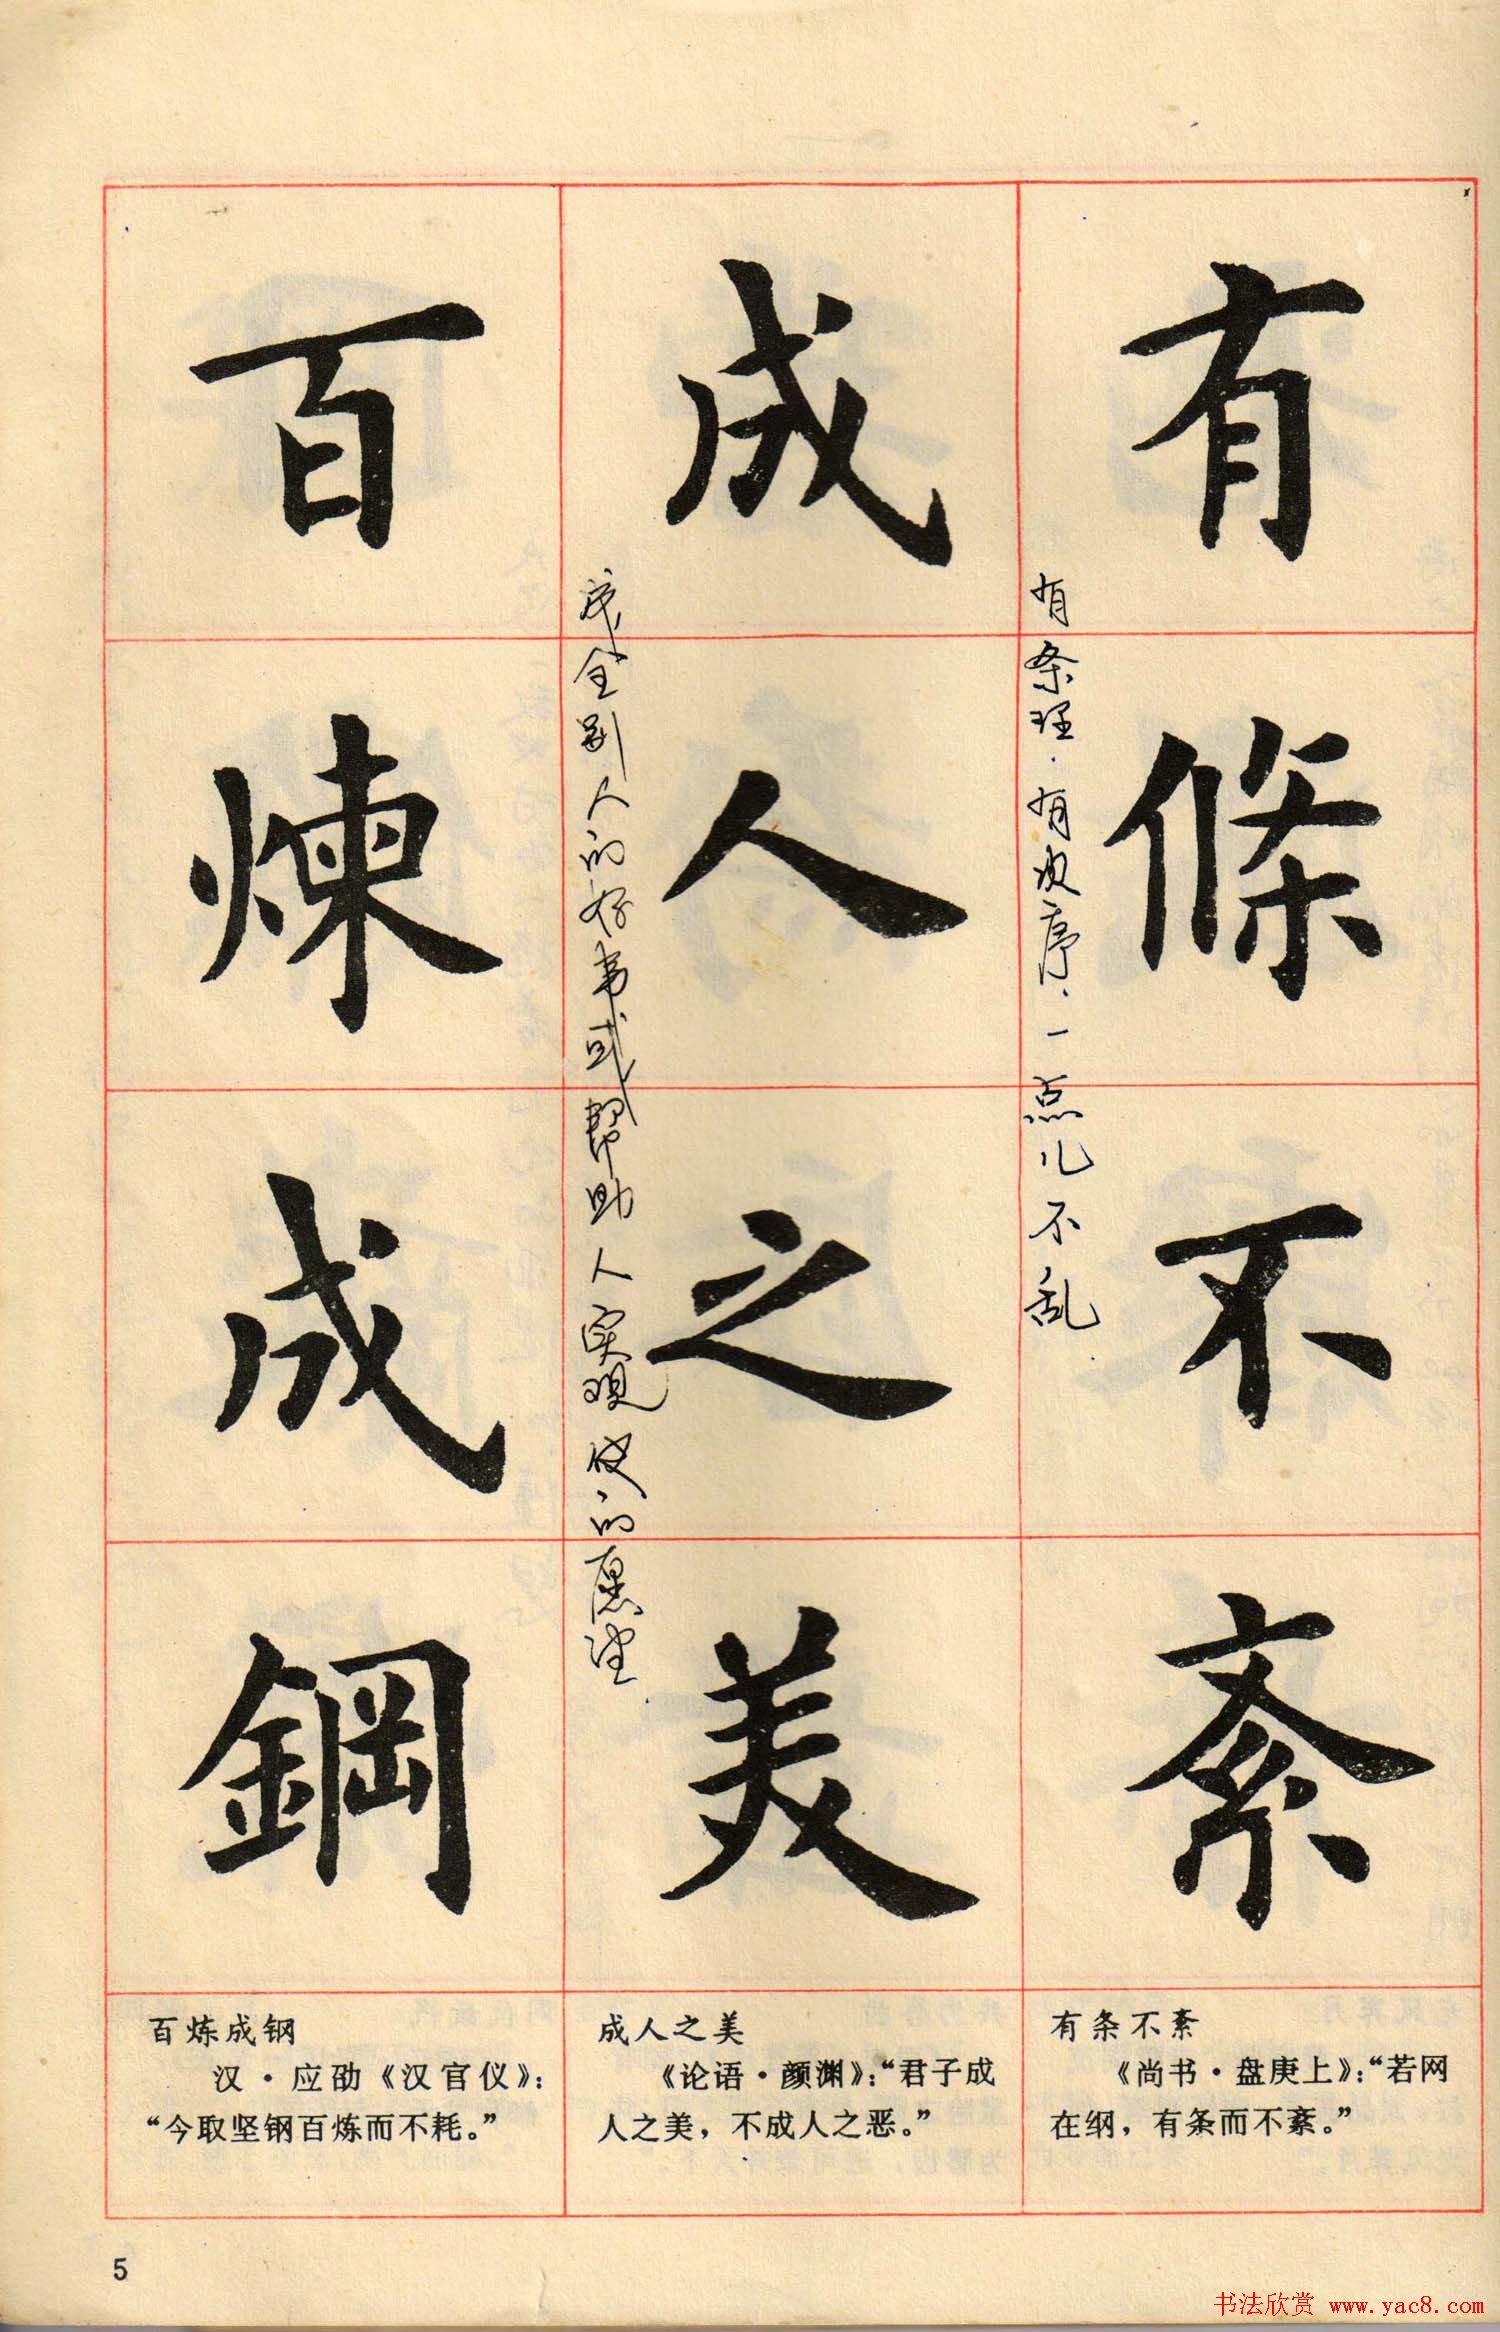 有條不紊
有条理.有次序.一点儿不乱.
成人之美
成全别人的好事或帮助人实现他的愿望.
百煉成鋼
有条不紊
《尚书·盘庚上》：“若网
在纲，有条而不紊。”
成人之美
《论语·颜渊》：“君子成
人之美，不成人之恶。”
百炼成钢
汉·应劭《汉官仪》：
“今取坚钢百炼而不耗。”
5
书法欣赏 www.yac8.com